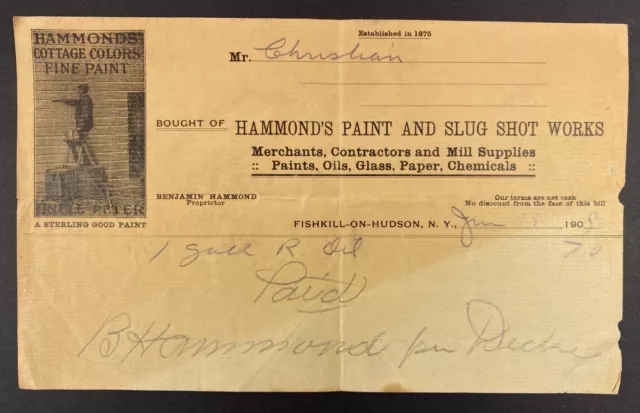 HAMMONDS
COTTAGE COLORS
FINE PAINT
UNCLE PETER
A STERLING GOOD PAINT
Established in 1875
Mr. Christian
BOUGHT OF HAMMOND'S PAINT AND SLUG SHOT WORKS
Merchants, Contractors and Mill Supplies
:: Paints, Oils, Glass, Paper, Chemicals ::
BENJAMIN HAMMOND
Proprietor
Our terms are net cash
No discount from the face of this bill
FISHKILL-ON-HUDSON, N. Y., 190
1 gall R. Oil 70
Paid
B Hammond per